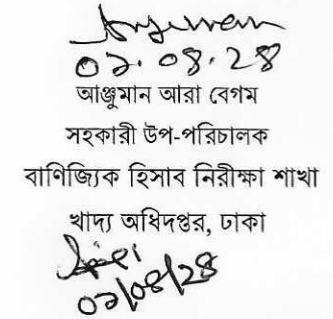 ০১.০৪.২৪
আঞ্জুমান আরা বেগম
সহকারী উপ-পরিচালক
বাণিজ্যিক হিসাব নিরীক্ষা শাখা
খাদ্য অধিদপ্তর, ঢাকা
০১/০৪/২৪